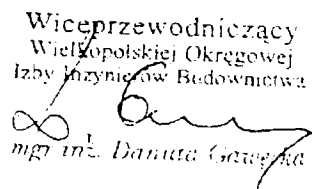 Wiceprzewodniczący
Wielkopolskiej Okręgowej
Izby Inżynierów Budownictwa
mgr inż. Danuta Gawęcka